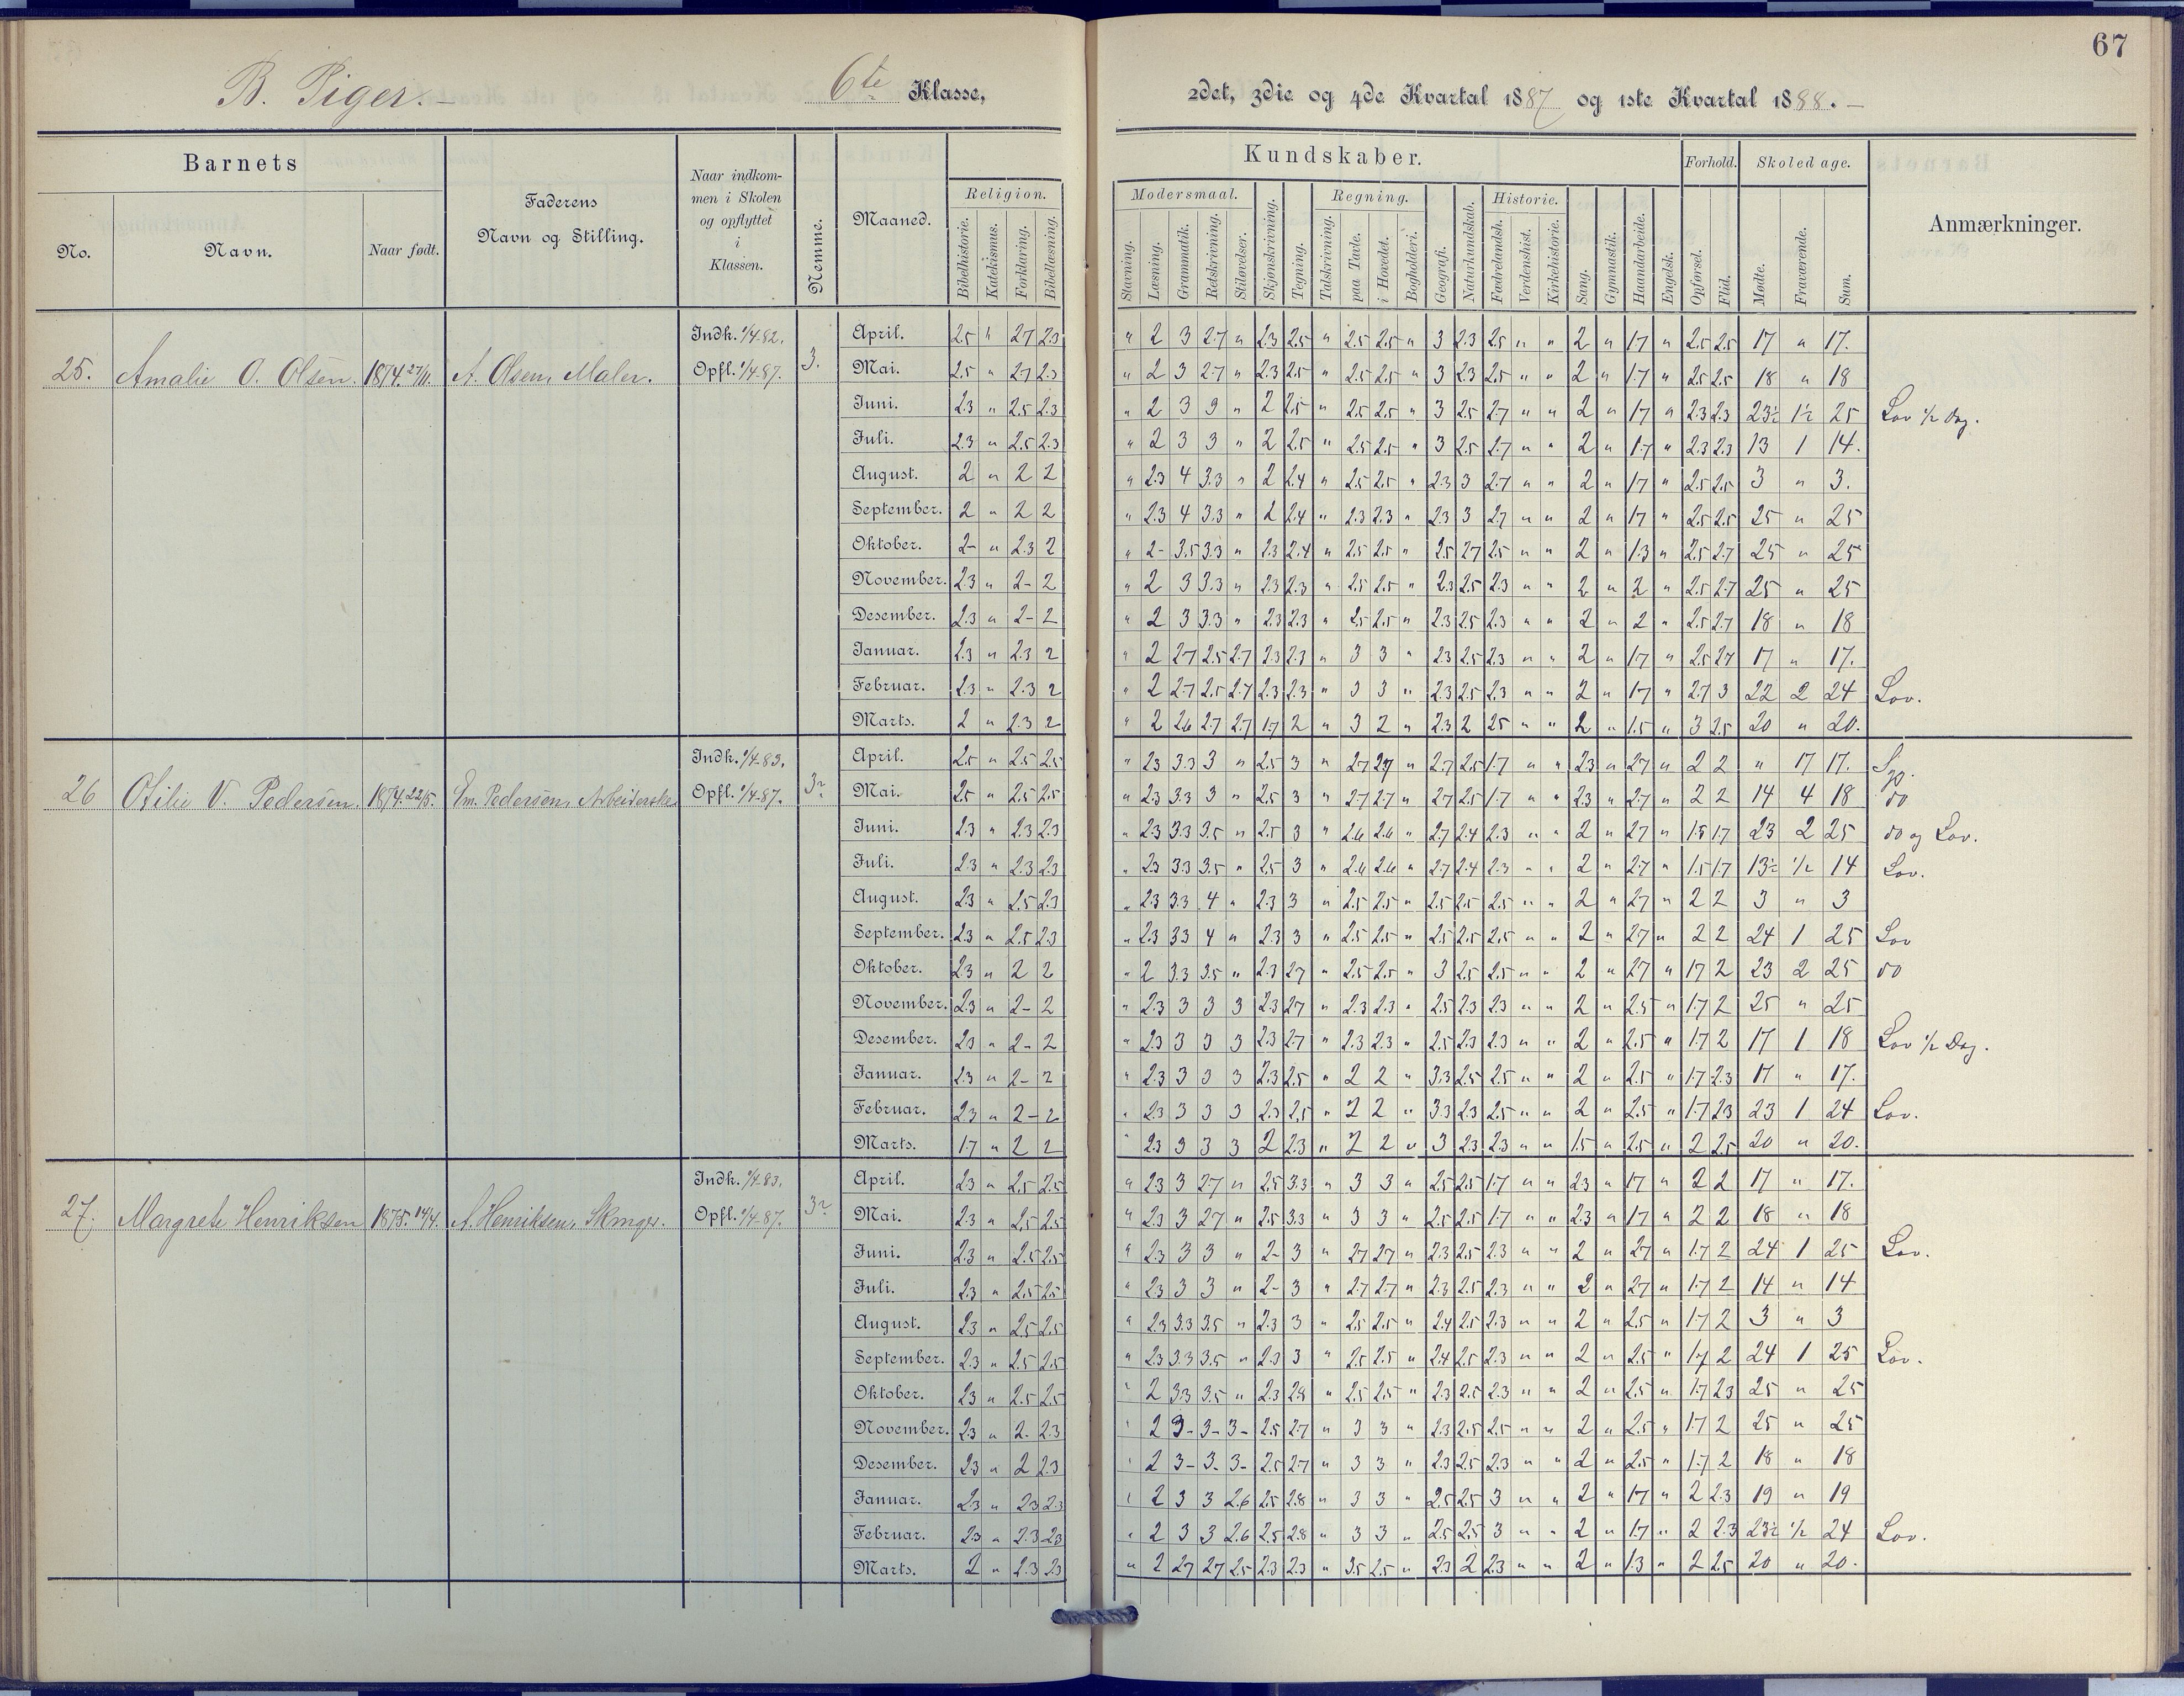 67
B. Piger. – 6te Klasse, 2det, 3die og 4de Kvartal 1887 og 1ste Kvartal 1888. –
Barnets
No. Navn. Naar født.
Faderens Navn og Stilling.
Naar indkommen i Skolen og opflyttet i Klassen.
Nemme.
Maaned.
Religion.
Bibelhistorie. Katekismus. Forklaring. Bibellæsning.
Kundskaber. Forhold. Skoledage.
Modersmaal. Regning. Historie.
Stavning. Læsning. Grammatik. Retskrivning. Stiløvelser. Skjønskrivning. Tegning. Talskrivning. paa Tavle. i Hovedet. Bogholderi. Geografi. Naturkundskab. Fædrelandsh. Verdenshist. Kirkehistorie. Sang. Gymnastik. Haandarbeide. Engelsk. Opførsel. Flid. Mødte. Fraværende. Sum.
Anmærkninger.
25. Amalie O. Olsen. 1874. 27/11. A. Olsen, Maler. Indk. 1/4-82. Opfl. 1/4-87. 3.
April. 2.5 " 2.7 2.3 " 2 3 2.7 " 2.3 2.5 " 2.5 2.5 " 3 2.3 2.5 " " 2 " 1.7 " 2.5 2.5 17 " 17.
Mai. 2.5 " 2.7 2.3 " 2 3 2.7 " 2.3 2.5 " 2.5 2.5 " 3 2.3 2.5 " " 2 " 1.7 " 2.5 2.5 18 " 18
Juni. 2.3 " 2.5 2.3 " 2 3 3 " 2 2.5 " 2.5 2.5 " 3 2.5 2.7 " " 2 " 1.7 " 2.3 2.3 23½ 1½ 25 Lov ½ Dag.
Juli. 2.3 " 2.5 2.3 " 2 3 3 " 2 2.5 " 2.5 2.5 " 3 2.5 2.7 " " 2 " 1.7 " 2.3 2.3 13 1 14.
August. 2 " 2 2 " 2.3 4 3.3 " 2 2.4 " 2.5 2.5 " 2.3 3 2.7 " " 2 " 1.7 " 2.5 2.5 3 " 3.
September. 2 " 2 2 " 2.3 4 3.3 " 2 2.4 " 2.3 2.3 " 2.3 3 2.7 " " 2 " 1.7 " 2.5 2.5 25 " 25
Oktober. 2- " 2.3 2 " 2- 3.5 3.3 " 2.3 2.4 " 2.5 2.5 " 2.5 2.7 2.5 " " 2 " 1.3 " 2.5 2.7 25 " 25
November. 2.3 " 2- 2 " 2 3 3.3 " 2.3 2.3 " 2.5 2.5 " 2.3 2.5 2.3 " " 2 " 2 " 2.5 2.7 25 " 25
Desember. 2.3 " 2- 2 " 2 3 3.3 " 2.3 2.3 " 2.5 2.5 " 2.3 2.5 2.3 " " 2 " 2 " 2.5 2.7 18 " 18
Januar. 2.3 " 2.3 2 " 2 2.7 2.5 2.7 2.3 2.3 " 3 3 " 2.3 2.5 2.3 " " 2 " 1.7 " 2.5 2.7 17 " 17.
Februar. 2.3 " 2.3 2 " 2 2.7 2.5 2.7 2.3 2.3 " 3 3 " 2.3 2.5 2.3 " " 2 " 1.7 " 2.7 3 22 2 24 Lov.
Marts. 2 " 2.3 2 " 2 2.6 2.7 2.7 1.7 2 " 3 2 " 2.3 2 2.5 " " 2 " 1.5 " 3 2.5 20 " 20.
26 Otilie V. Pedersen. 1874. 22/5. Em. Pedersen, Arbeiderske Indk. 1/4-83. Opfl. 1/4-87. 3
April. 2.5 " 2.5 2.5 " 2.3 3.3 3 " 2.5 3 " 2.7 2.7 " 2.7 2.5 1.7 " " 2.3 " 2.7 " 2 2 " 17 17. Syg.
Mai. 2.5 " 2.5 2.5 " 2.3 3.3 3 " 2.5 3 " 2.7 2.7 " 2.7 2.5 1.7 " " 2.3 " 2.7 " 2 2 14 4 18 do
Juni. 2.3 " 2.3 2.3 " 2.3 3.3 3.5 " 2.5 3 " 2.6 2.6 " 2.7 2.4 2.3 " " 2 " 2.7 " 1.5 1.7 23 2 25 do og Lov.
Juli. 2.3 " 2.3 2.3 " 2.3 3.3 3.5 " 2.5 3 " 2.6 2.6 " 2.7 2.4 2.3 " " 2 " 2.7 " 1.5 1.7 13½ ½ 14 Lov.
August. 2.3 " 2.5 2.3 " 2.3 3.3 4 " 2.3 3 " 2.5 2.5 " 2.5 2.5 2.5 " " 2 " 2.7 " 2 2 3 " 3
September. 2.3 " 2.5 2.3 " 2.3 3.3 4 " 2.3 3 " 2.5 2.5 " 2.5 2.5 2.5 " " 2 " 2.7 " 2 2 24 1 25 Lov
Oktober. 2.3 " 2 2 " 2 3.3 3.5 " 2.3 2.7 " 2.5 2.5 " 3 2.5 2.5 " " 2 " 2.7 " 1.7 2 23 2 25 do
November. 2.3 " 2- 2 " 2.3 3 3 3 2.3 2.7 " 2.3 2.3 " 2.5 2.3 2.3 " " 2 " 2.5 " 1.7 2 25 " 25
Desember. 2.3 " 2- 2 " 2.3 3 3 3 2.3 2.7 " 2.3 2.3 " 2.5 2.3 2.3 " " 2 " 2.5 " 1.7 2 17 1 18 Lov ½ Dag.
Januar. 2.3 " 2- 2 " 2.3 3 3 3 2.3 2.5 " 2 2 " 3.3 2.5 2.5 " " 2 " 2.5 " 1.7 2.3 17 " 17.
Februar. 2.3 " 2- 2 " 2.3 3 3 3 2.3 2.5 " 2 2 " 3.3 2.3 2.5 " " 2 " 2.5 " 1.7 2.3 23 1 24 Lov.
Marts. 1.7 " 2 2 " 2.3 3 3 3 2 2.3 " 2 2 " 3 2.3 2.3 " " 1.5 " 2.5 " 2 2.5 20 " 20.
27. Margrete Henriksen 1875. 14/4. A. Henriksen, Skinger. Indk. 1/4-83. Opfl. 1/4-87. 3
April. 2.3 " 2.5 2.5 " 2.3 3 2.7 " 2.5 3.3 " 3 3 " 2.5 2.5 1.7 " " 2.3 " 1.7 " 2 2 17 " 17.
Mai. 2.3 " 2.5 2.5 " 2.3 3 2.7 " 2.5 3.3 " 3 3 " 2.5 2.5 1.7 " " 2.3 " 1.7 " 2 2 18 " 18
Juni. 2.3 " 2.5 2.5 " 2.3 3 3 " 2- 3 " 2.7 2.7 " 2.3 2.5 2.3 " " 2 " 2.7 " 1.7 2 24 1 25 Lov.
Juli. 2.3 " 2.5 2.5 " 2.3 3 3 " 2- 3 " 2.7 2.7 " 2.3 2.5 2.3 " " 2 " 2.7 " 1.7 2 14 " 14
August. 2.3 " 2.5 2.5 " 2.3 3.3 3.5 " 2.3 3 " 2.5 2.5 " 2.4 2.5 2.3 " " 2 " 2.5 " 1.7 2 3 " 3
September. 2.3 " 2.5 2.5 " 2.3 3.3 3.5 " 2.3 3 " 2.5 2.5 " 2.4 2.5 2.3 " " 2 " 2.5 " 1.7 2 24 1 25 Lov.
Oktober. 2.3 " 2.5 2.5 " 2 3.3 3.5 " 2.3 2.8 " 2.5 2.5 " 2.3 2.5 2.3 " " 2 " 2.5 " 1.7 2.3 25 " 25
November. 2.3 " 2- 2.3 " 2 3- 3- 3- 2.5 2.7 " 3 3 " 2.3 2.5 2.5 " " 2 " 2.5 " 1.7 2 25 " 25
Desember. 2.3 " 2 2.3 " 2 3- 3- 3- 2.5 2.7 " 3 3 " 2.3 2.5 2.3 " " 2 " 2.5 " 1.7 2 18 " 18
Januar. 2.3 " 2.3 2.3 " 2 3 3 2.6 2.5 2.8 " 3 3 " 2.5 2.5 3 " " 2 " 1.7 " 2 2.3 19 " 19
Februar. 2.3 " 2.3 2.3 " 2 3 3 2.6 2.5 2.8 " 3 3 " 2.5 2.5 3 " " 2 " 1.7 " 2 2.3 23½ ½ 24 Lov.
Marts. 2 " 2.3 2.3 " 2 2.7 2.7 2.5 2.3 2.3 " 3.5 2.5 " 2.3 2 2.3 " " 2 " 1.3 " 2 2.5 20 " 20.